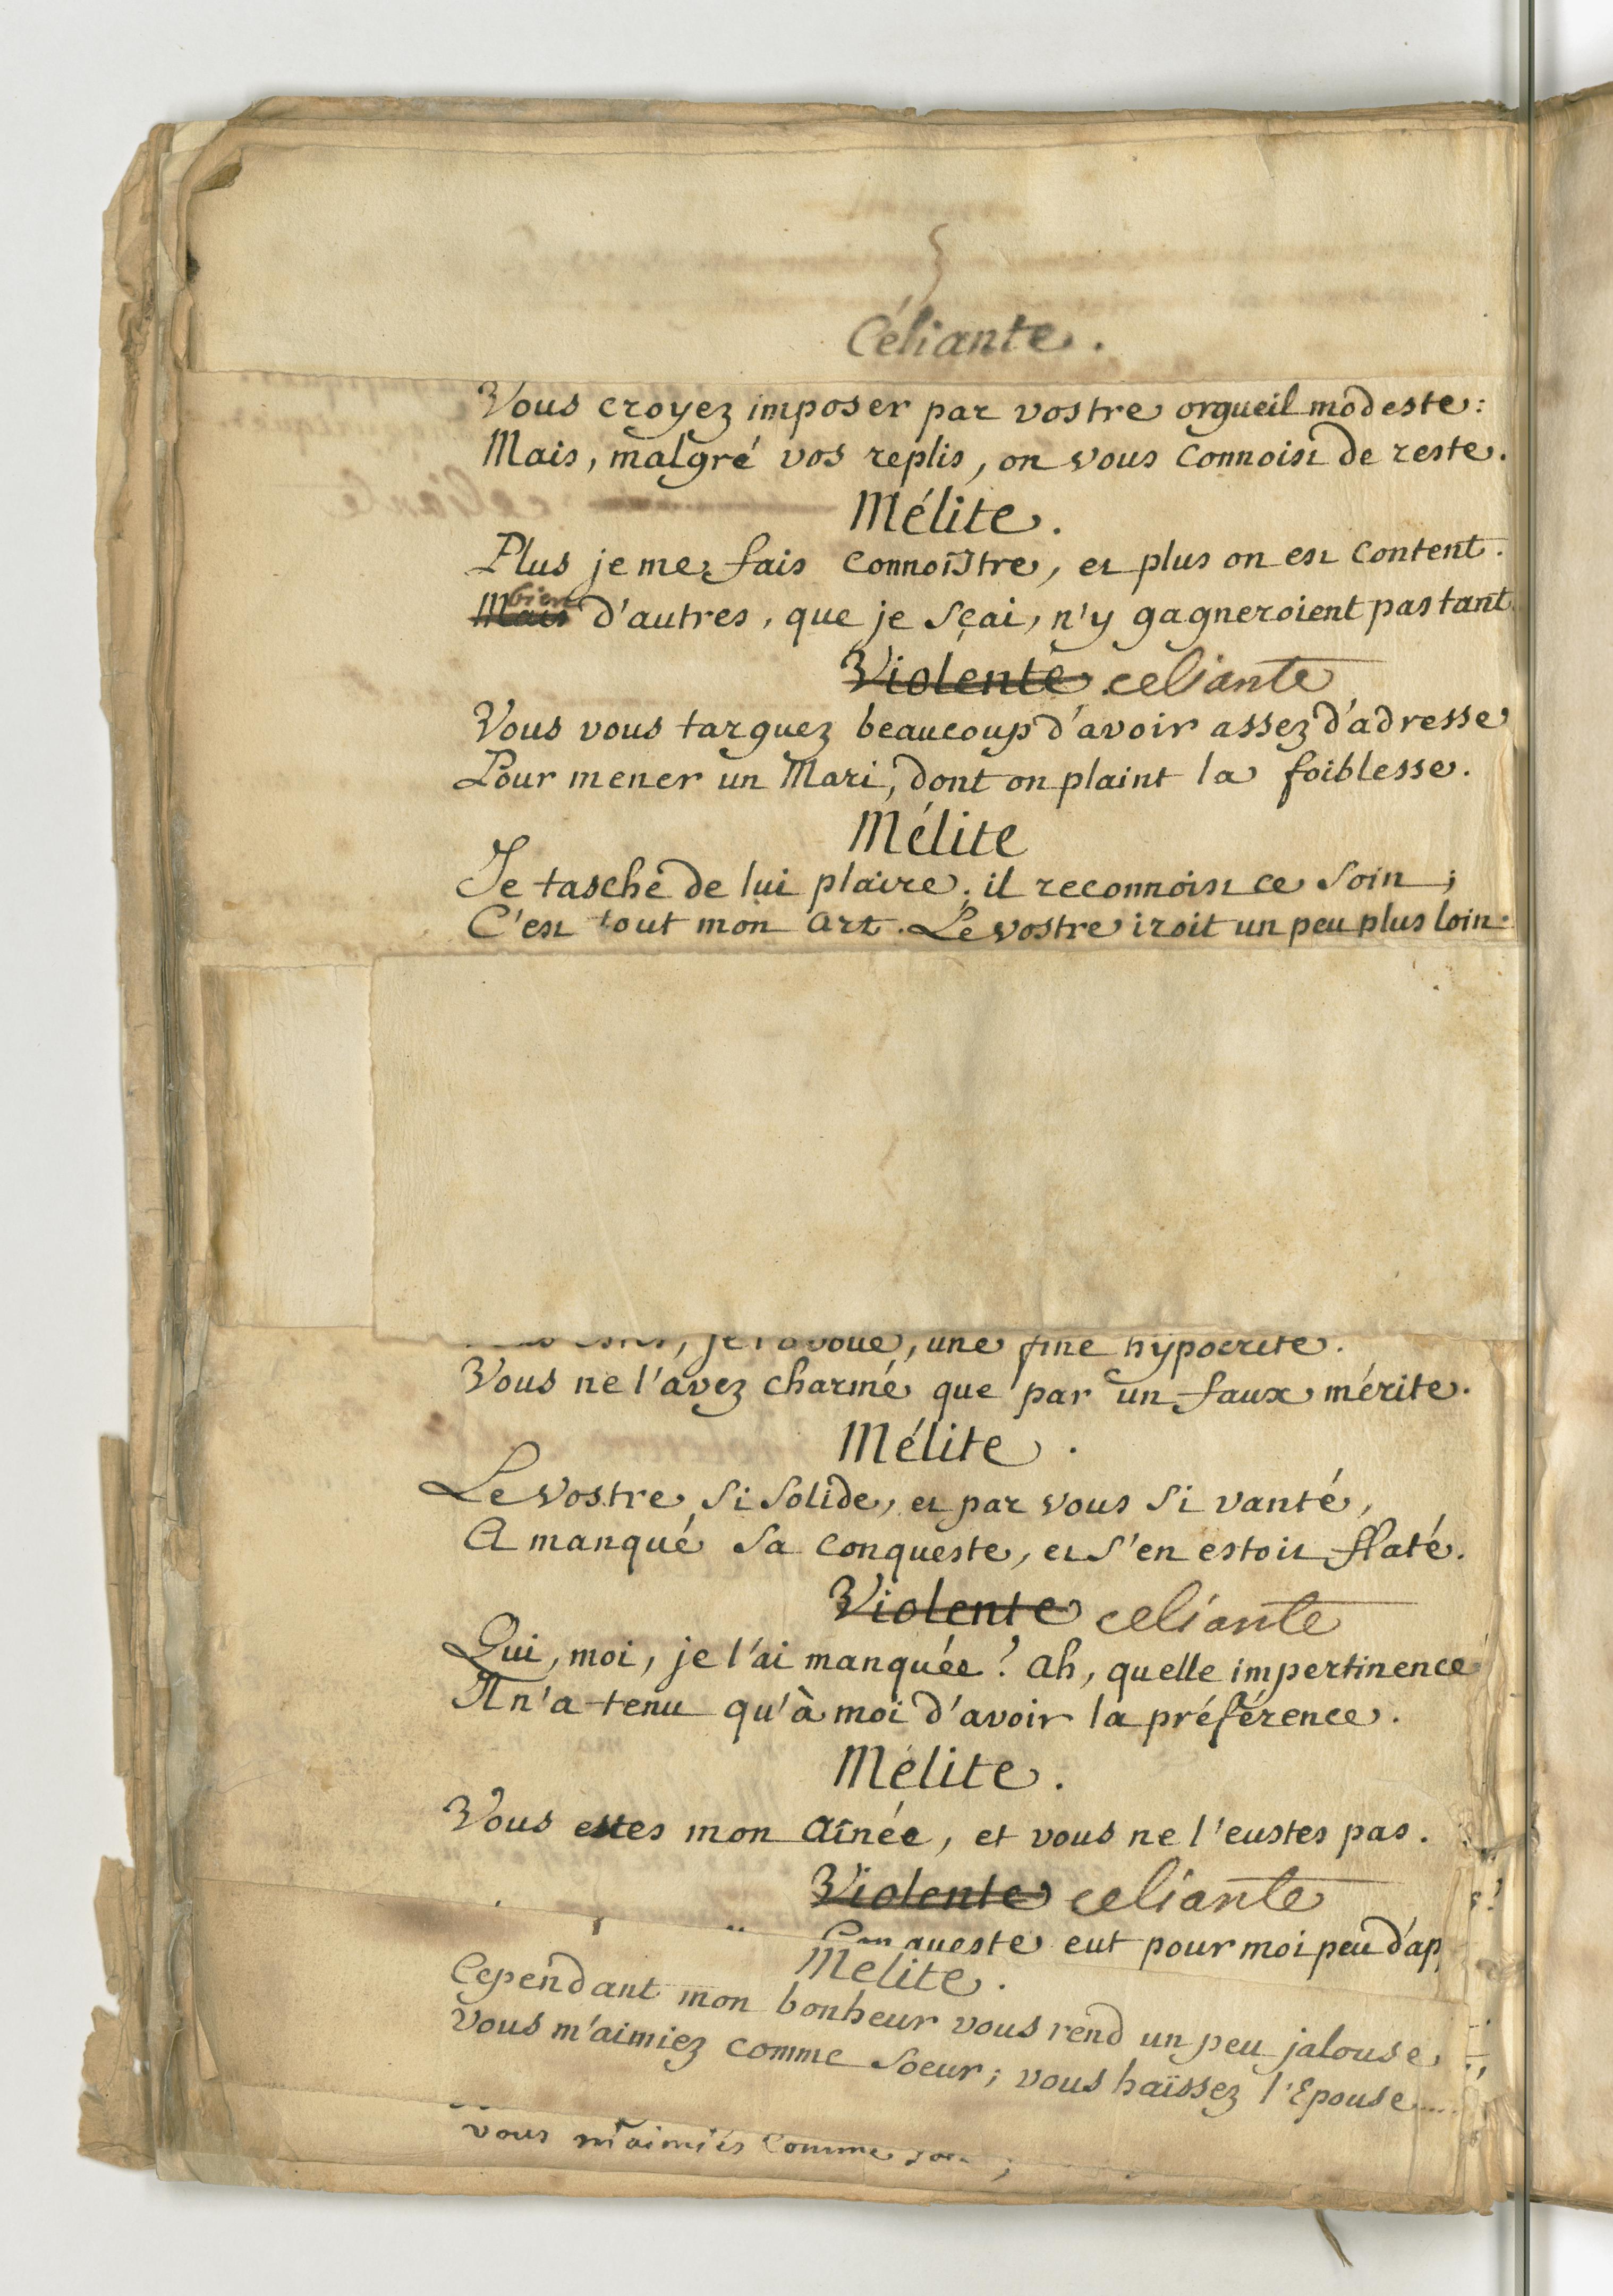 Céliante.
Vous croyez imposer par vostre orgueil modeste:
Mais, malgré vos replis, on vous connoist de reste.
Mélite.
Plus je me fais connoistre, et plus on est content.
bien
Mais d'autres, que je sçai, n'y gagneroient pas tant
Violente celiante
Vous vous targuez beaucoup d'avoir assez d'adresse
Pour mener un Mari, dont on plaint la foiblesse.
Mélite
Je tasche de lui plaire; il reconnoist ce soin;
C'est tout mon art. Le vostre iroit un peu plus loin.
je l'avoue, une fine hypocrite.
Vous ne l'avez charmé que par un faux mérite.
Mélite.
Le vostre si solide, et par vous si vanté,
A manqué sa conqueste, et s'en estoit flaté.
Violente celiante
Qui, moi, je l'ai manquée? ah, quelle impertinence
Il n'a tenu qu'à moi d'avoir la préférence.
Mélite.
Vous estes mon aînée, et vous ne l'eustes pas.
Violente celiante
Conqueste eut pour moi peu d'ap
Mélite.
Cependant mon bonheur vous rend un peu jalouse,
Vous m'aimiez comme soeur; vous haïssez l'Epouse
vous m'aimiés comme